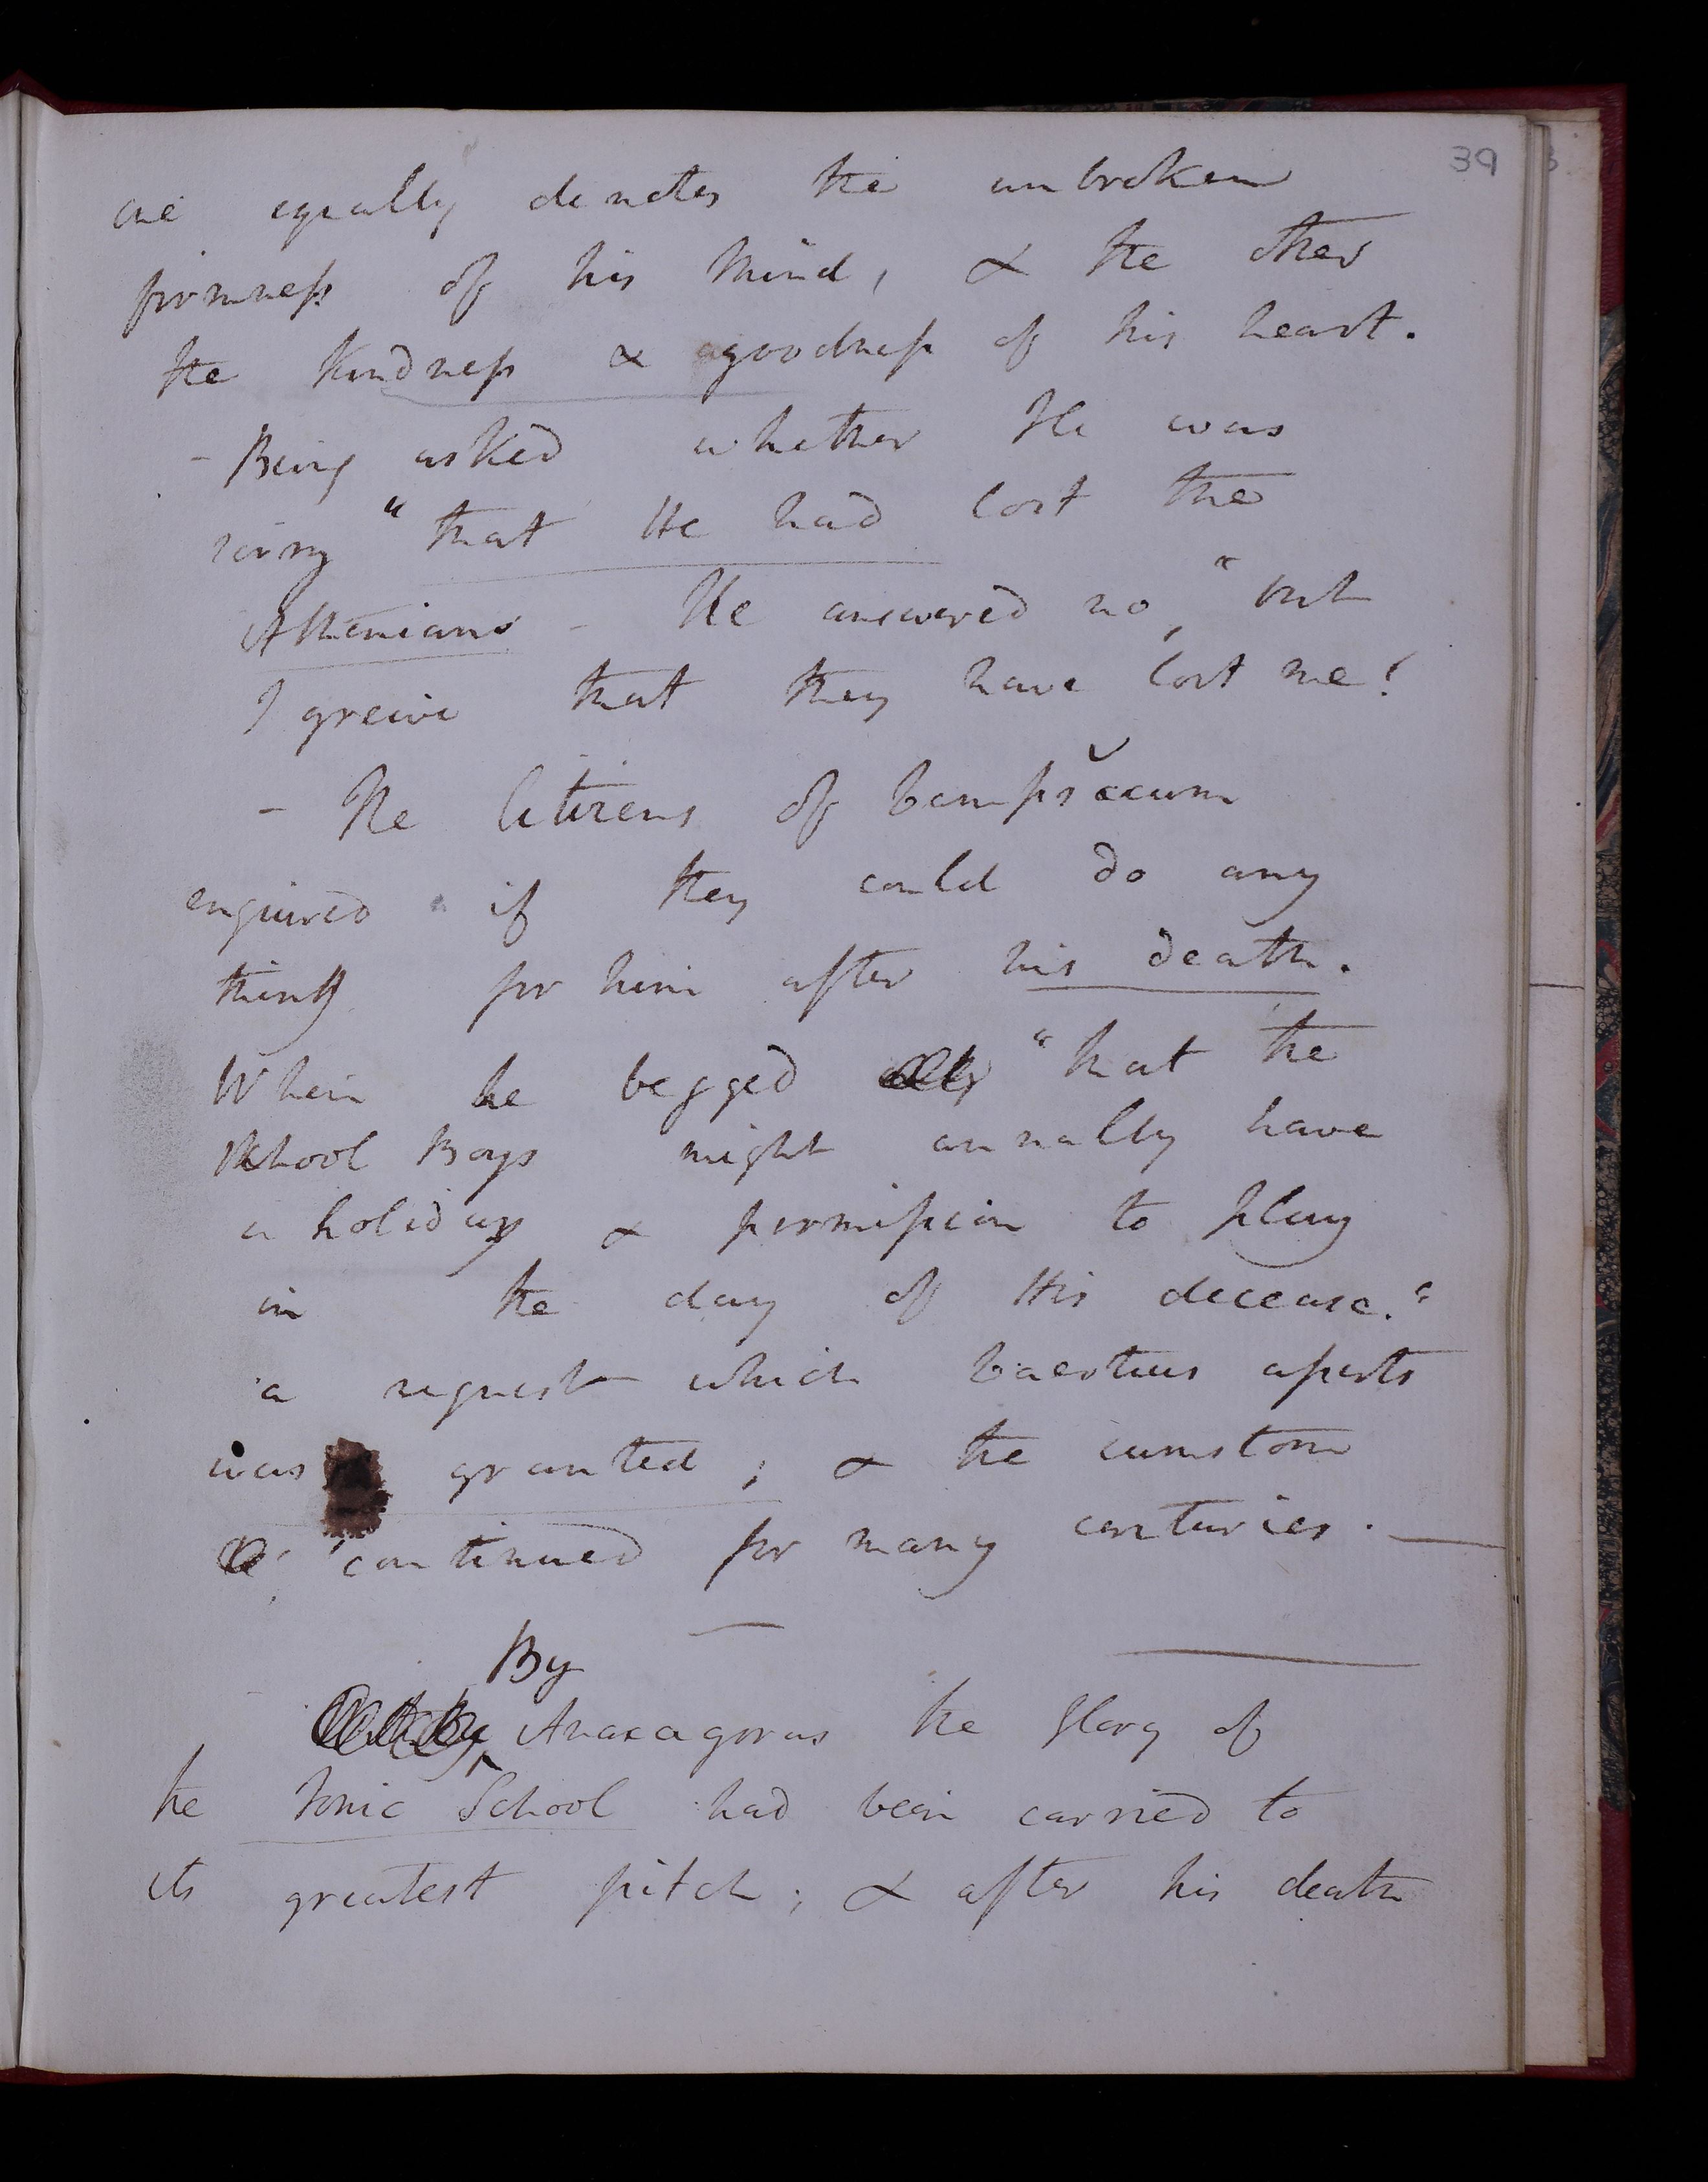 39
one equally denotes the unbroken
firmness of his Mind, & the other
the Kindness & goodness of his heart.
- Being asked whether He was
sorry "that He had lost the
Athenians - He answered no, "but
I greive that they have lost me!
- The Citizens of Lampsăcum
enquired if they could do any
thing for him after his death.
When he begged "that the
School Boys might annally have
a holiday & permission to play
in the day of His decease."
a request which Laertius asserts
was granted; & the cumstom
continued for many centuries. —
By
Anaxagoras the Glory of
the Ionic School had been carried to
its greatest pitch; & after his death